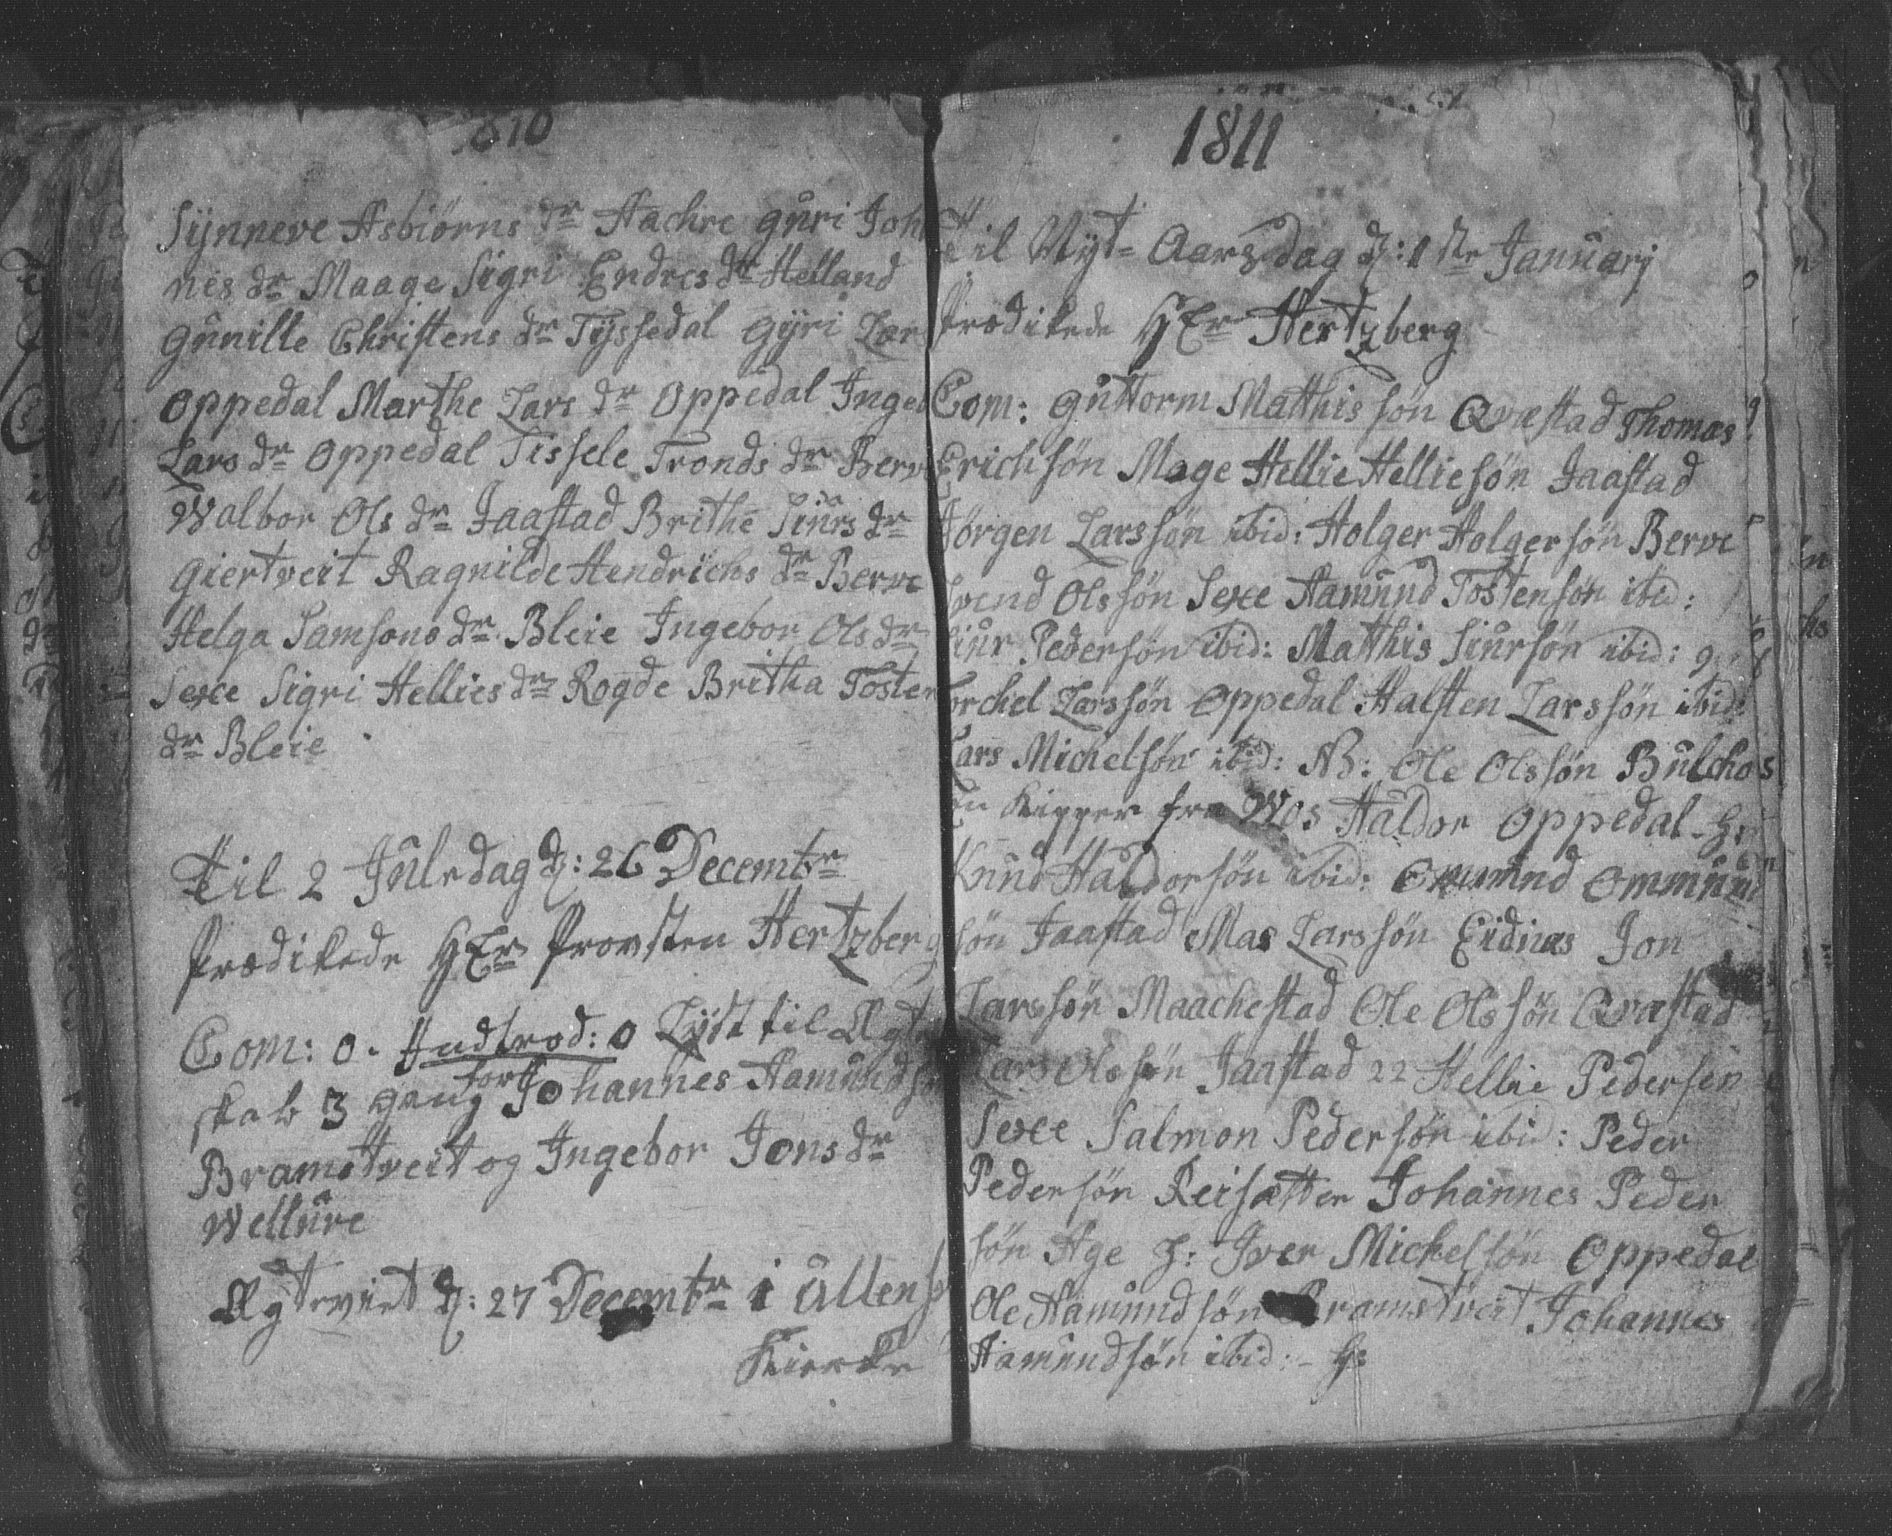 810
Sÿnneve Asbiørns dr Aachre guri Joha
nis dr Maage Sigri Endres dr Helland
gunille Christens dr Tÿssedal gÿri Lars
Oppedal Marthe Lars dr Oppedal Ingeb
Lars dr Oppedal Tissele Tronds dr Berve
Walbor Ols dr Jaastad Brithe Siurs dr
giertveit Ragnilde Hendrichs dr Berve
Helga Samsons dr Bleie Ingebor Ols dr
Sexe Sigri Hellies dr Rogde Britha Tosten
dr Bleie
Til 2 Juledag d: 26 Decembr
Prædikede HEr Provsten Hertzberg
Com: 0. Andtrød: 0 Lÿst til Ægte
skab 3 gang for Johannes Aamunds
Bramstveit og Ingebor Jons dr
Wellure
Ægteviet d: 27 Decembr i Ullens
Kierke
1811
Til Nÿt-Aarsdag d: 1ste Januarj
Prædikede HEr Hertzberg
Com: guttorm Matthissøn Qvæstad Thomas
Erichsøn Mage Hellie Helliesøn Jaastad
Jørgen Larssøn ibid: Holger Holgersøn Berve
Svend Olssøn Sexe Aamund Tostensøn ibid:
Siur Pedersøn ibid: Matthis Siursøn ibid: g
Torchel Larssøn Oppedal Halsten Larssøn ibid:
Lars Michelsøn ibid: NB: Ole Olssøn Bulchos
En Kipper fra Wos Haldor Oppedal - H:
Knud Haldorsøn ibid: Ommund Ommun
søn Jaastad Mas Larssøn Eidnæs Jon
Larssøn Maachestad Ole Olssøn Qvæstad
Lars Olssøn Jaastad 22 Hellie Pedersen
Sexe Salmon Pedersøn ibid: Peder
Pedersøn Reisætter Johannes Peder
søn Age H: Iver Michelsøn Oppedal
Ole Aamundsøn Bramstveit Johannes
Aamundsøn ibid: - H: